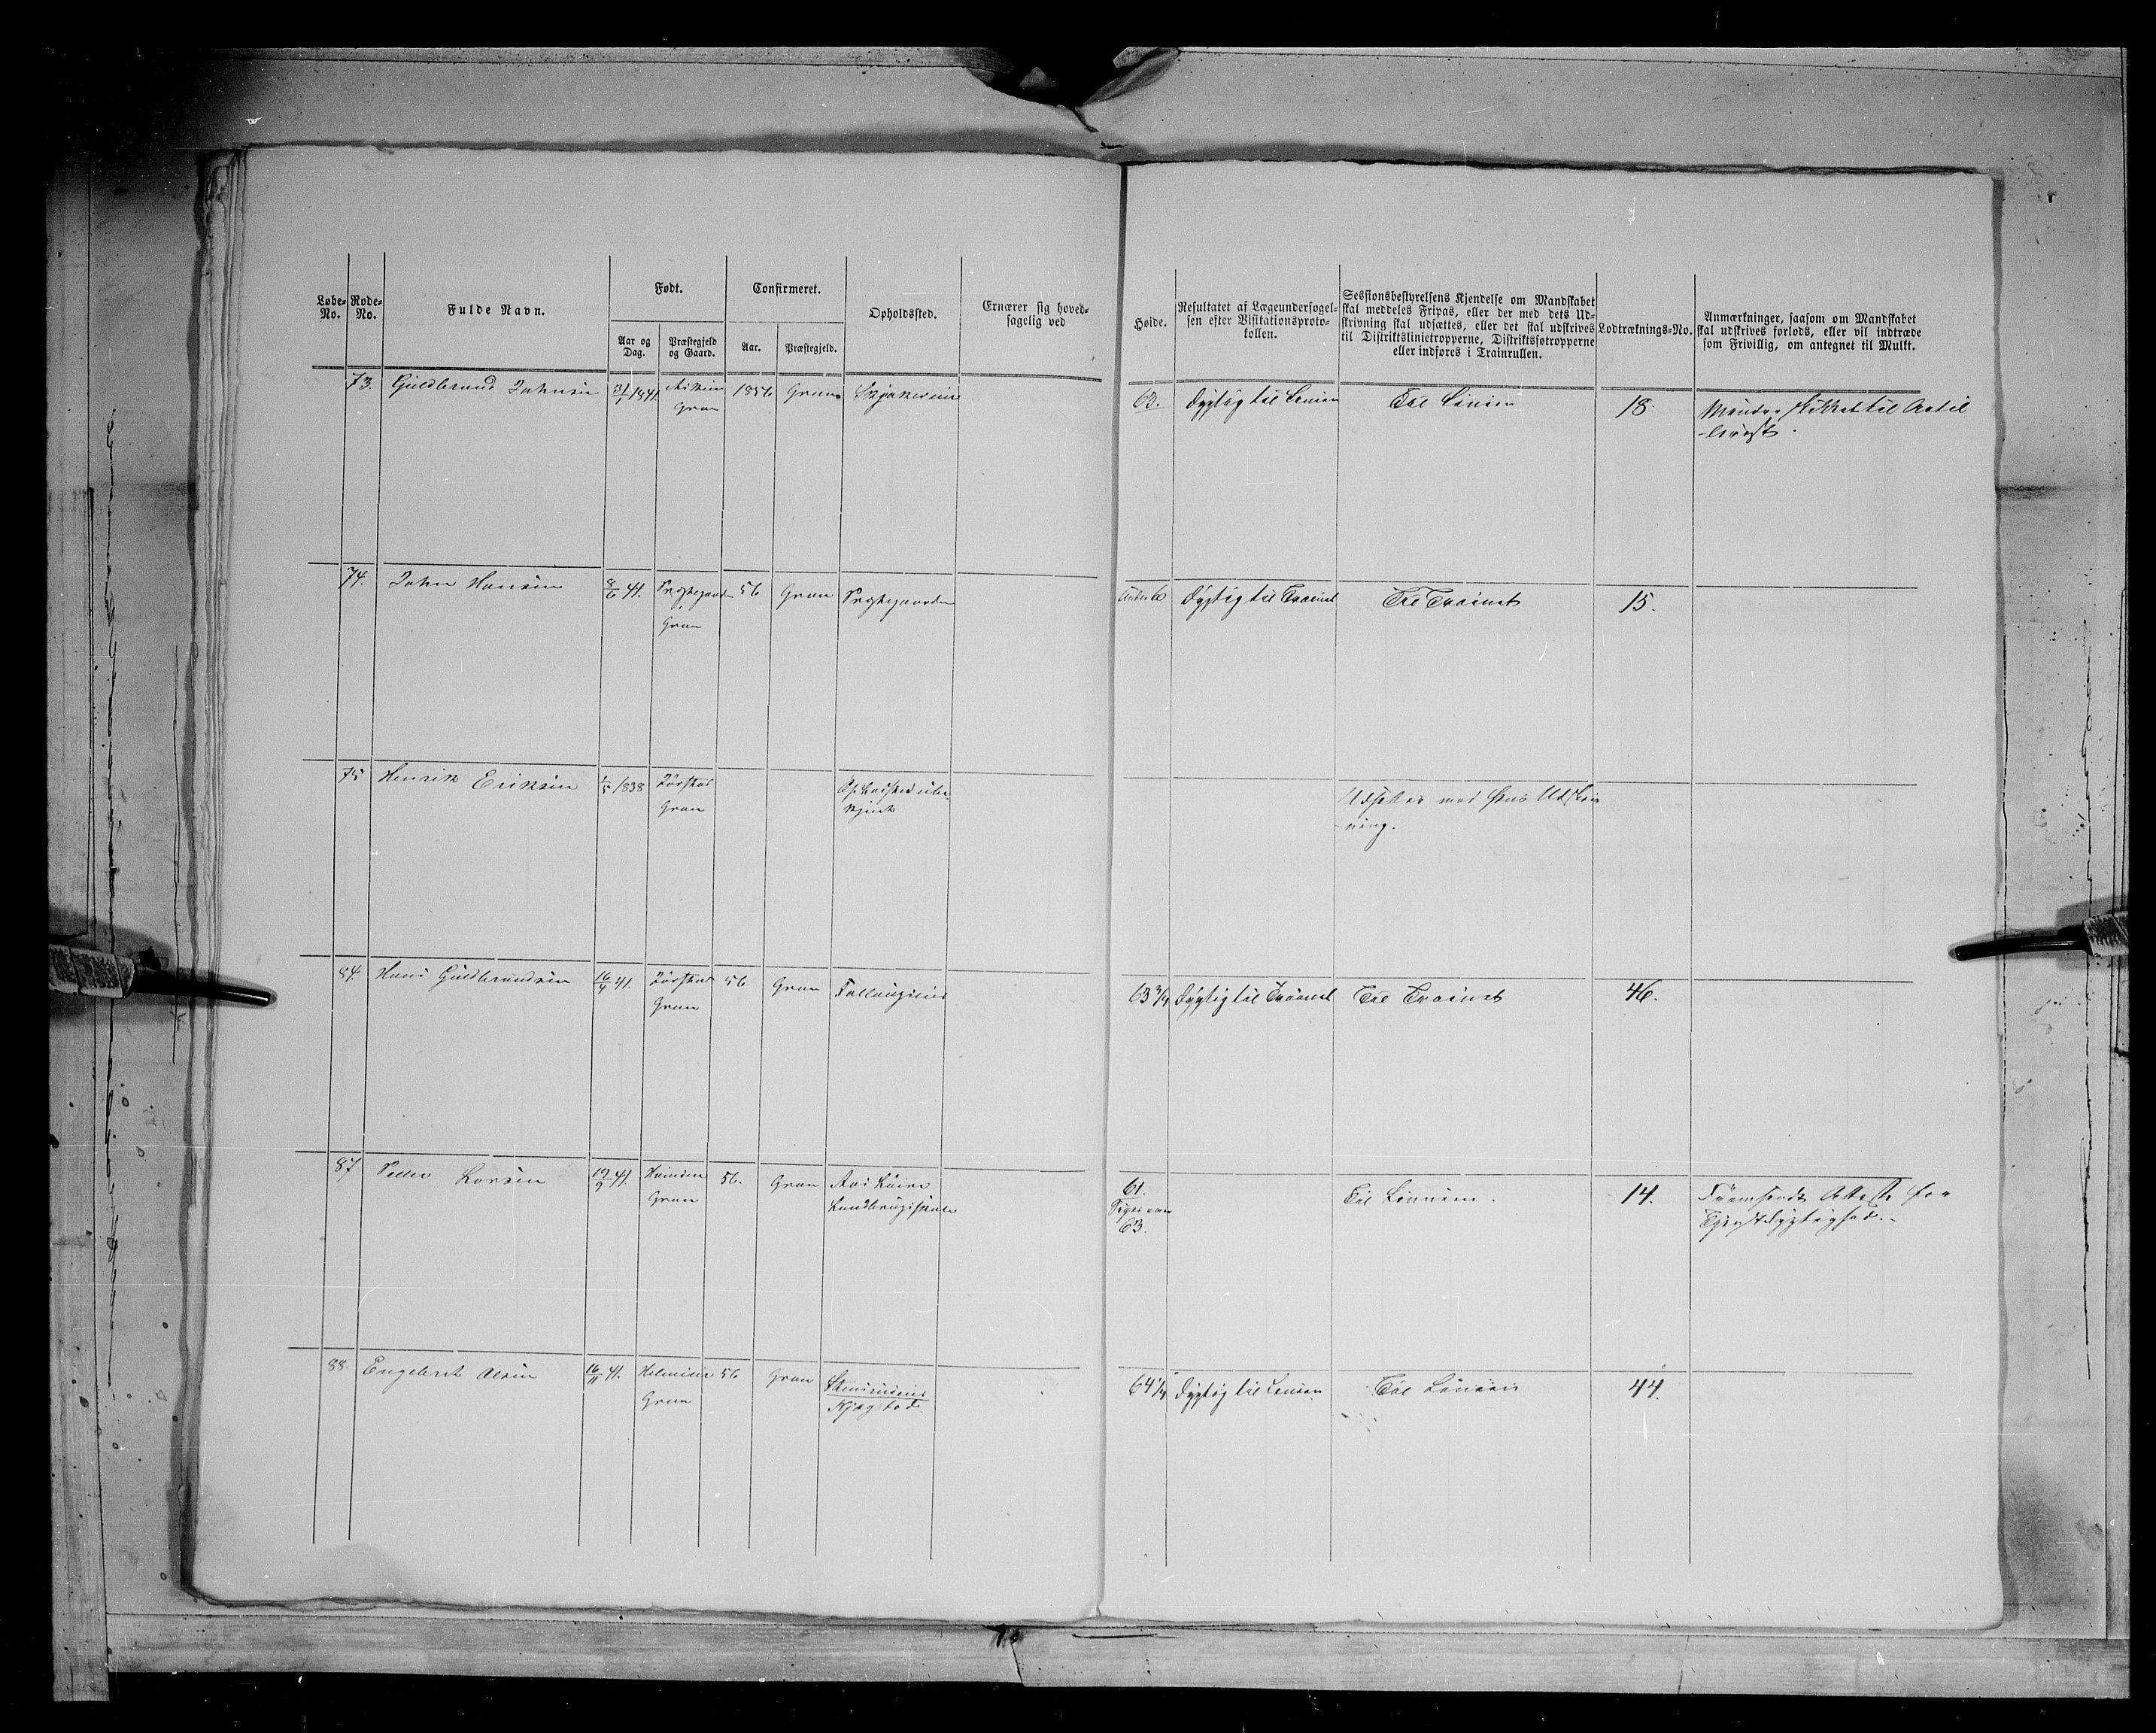 Løbe-No.
Rode-No.
Fulde Navn.
Født.
Aar og Dag.
Præstegjeld og Gaard.
Confirmeret.
Aar.
Præstegjeld.
Opholdssted.
Ernærer sig hoved-
sagelig ved
Høide.
Resultatet af Lægeundersøgel-
sen efter Visitationsproto-
kollen.
Sessionsbestyrelsens Kjendelse om Mandskabet
skal meddeles Fripas, eller der med dets Ud-
skrivning skal udsættes, eller det skal udskrives
til Distriktslinietropperne, Distriktsfotropperne
eller indføres i Trainrullen.
Lodtræknings-No.
Anmærkninger, saasom om Mandskabet
skal udskrives forlods, eller vil indtræde
som Frivillig, om antegnet til Mulkt.
73. Guldbrand Johnsen 31/1 1841. 1856 Gran 63. Dygtig til Linien Til Linien 18.
Gran
74. John Hansen 8/6 41. Præstegaarden 56 Gran Præstegaarden Under 60 Dygtig til Trainet Til Trainet 15.
Gran
75 Henrik Eriksen 1/5 1838 Udsættes med hans Udskriv
Gran
-ning.
84. Hans Guldbrandsen 16/4 41. 56 Gran 63 3/4 Dygtig til Trainet Til Trainet 46.
Gran
87 Peder Larsen 19/9 41. 56. Gran Aas 61. Til Linien. 14. Attest for
Gran Landbrugsskole Siges være
63. Tjenstdygtighed.
88. Engebret Olsen 16/11 41. 56 Gran 64 1/4 Dygtig til Linien Til Linien 44.
Gran Kjægstad